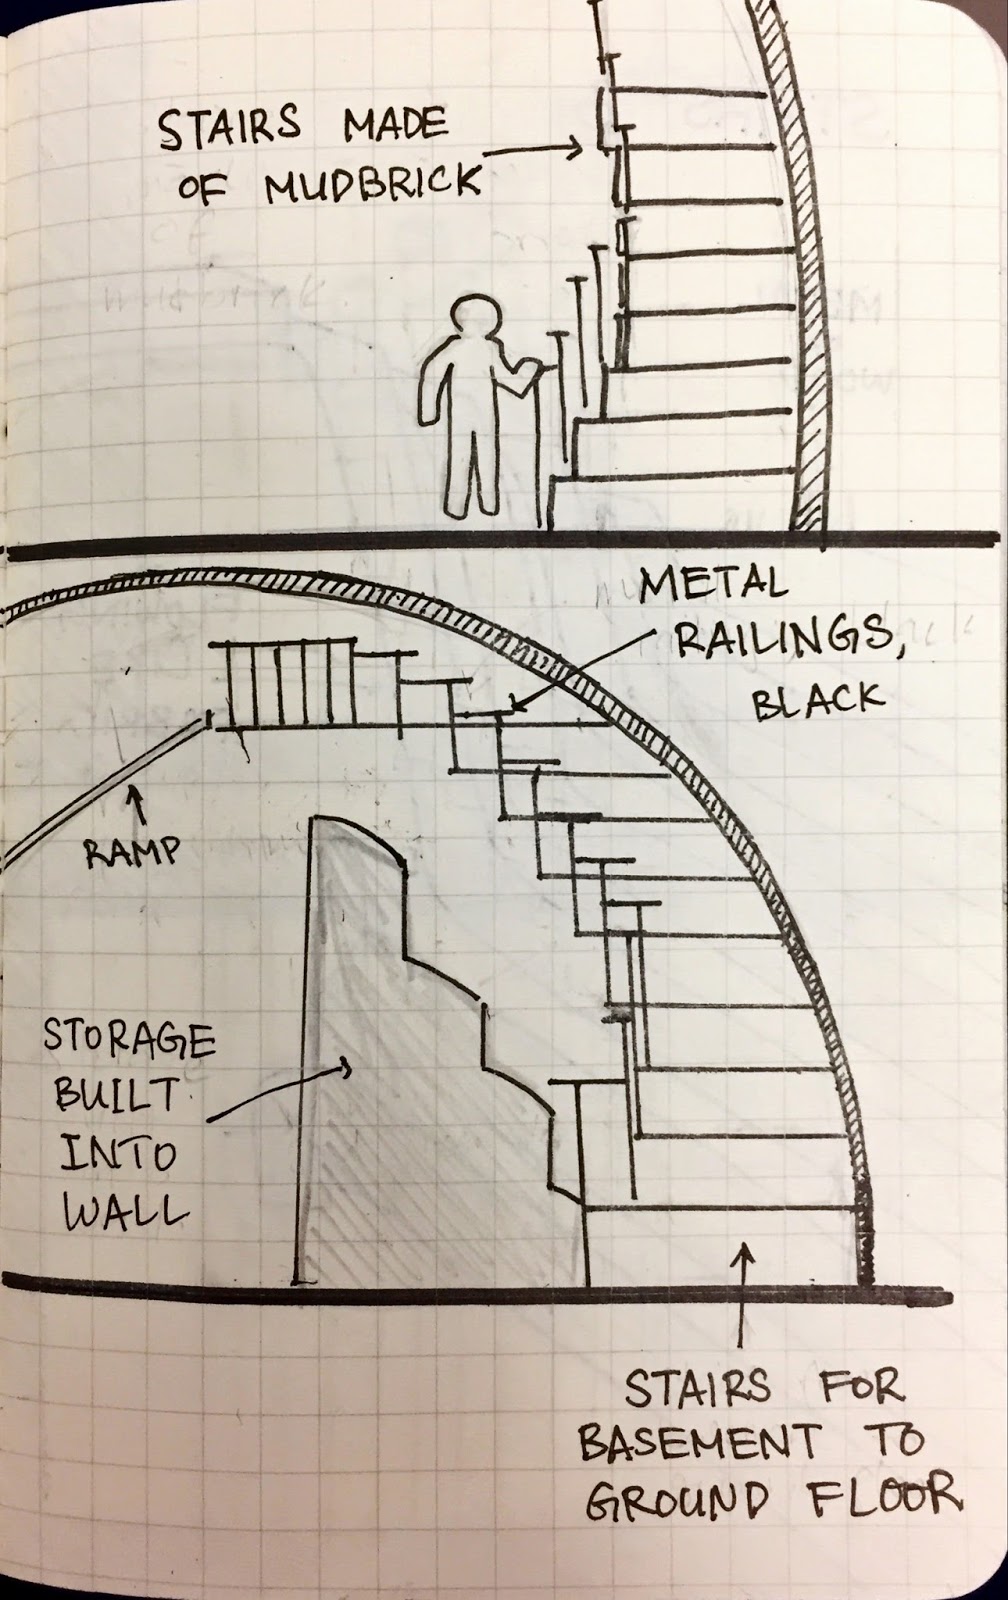 STAIRS MADE
OF MUDBRICK
METAL
RAILINGS,
BLACK
RAMP
STORAGE
BUILT
INTO
WALL
STAIRS FOR
BASEMENT TO
GROUND FLOOR